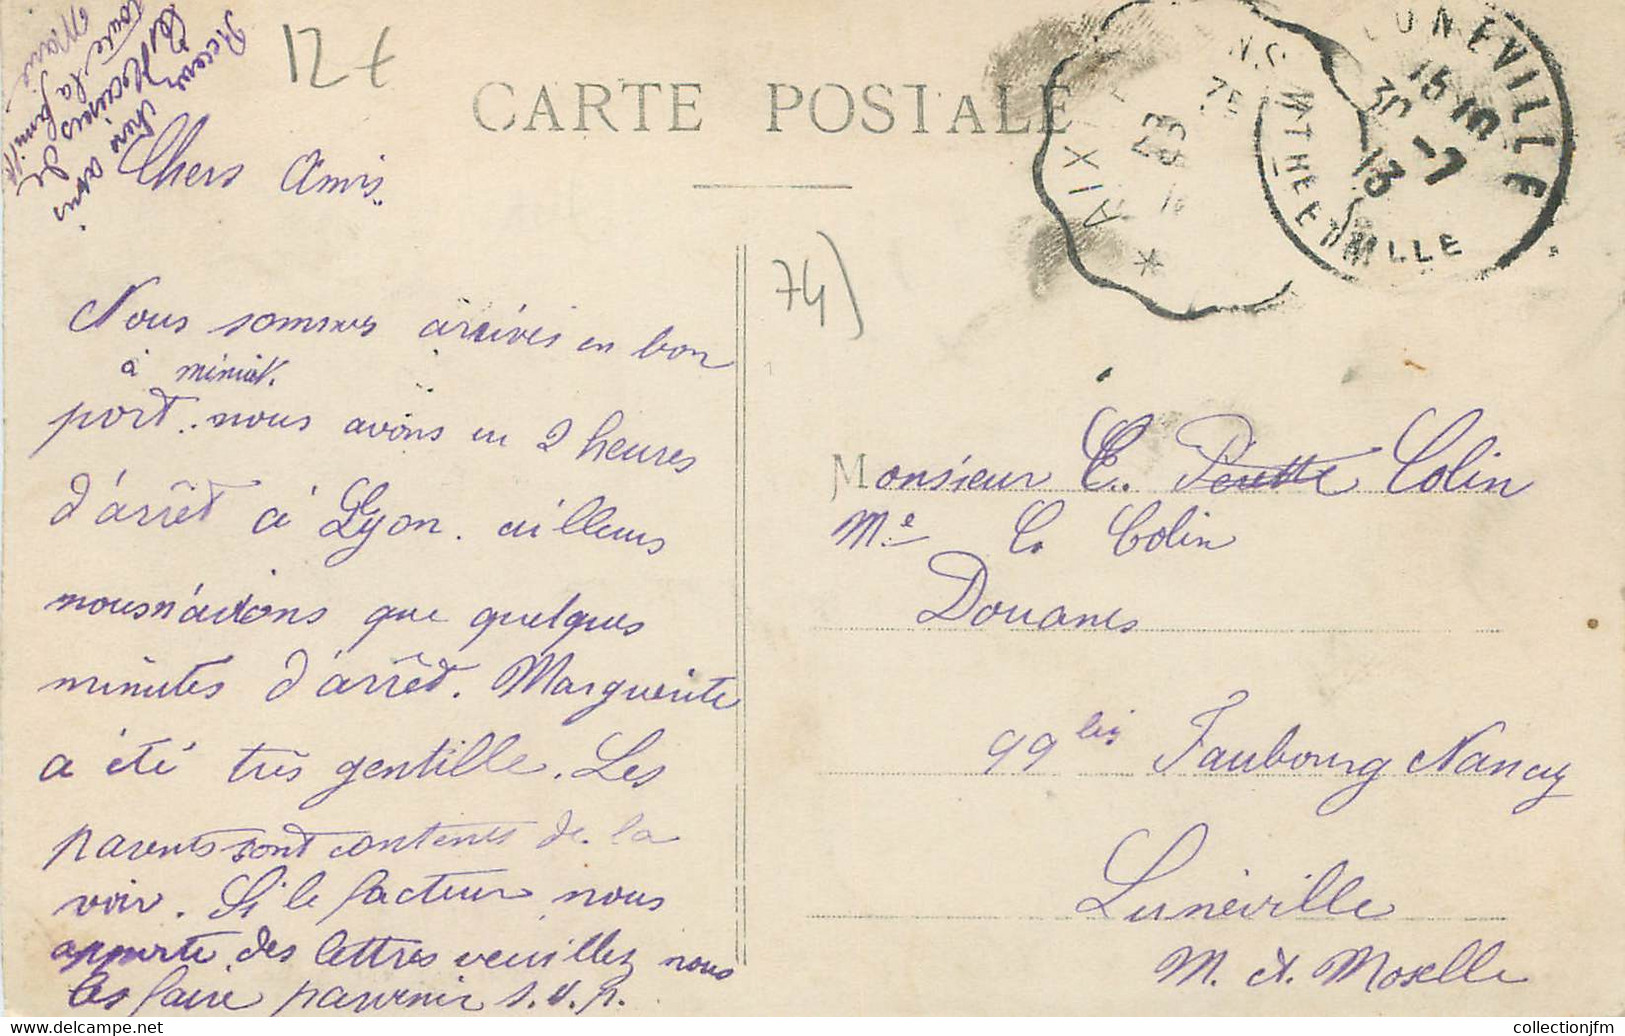 Recevez chers amis
les
de
toute la famille
Marie
12 t
CARTE POSTALE
LUNEVILLE
15 10
30 -7
13
MTHE ET MLLE
* AIX
Chers Amis
Nous sommes arrivés en bon
à minuit.
port. nous avons eu 2 heures
d'arrêt à Lyon. ailleurs
nous n'avions que quelques
minutes d'arrêt. Marguerite
a été très gentille. Les
parents sont contents de la
voir. Si le facteur nous
apporte des lettres veuillez nous
les faire parvenir s.v.p.
74)
Monsieur C. Colin
Me C. Colin
Douanes
99 bis Faubourg Nancy
Lunéville
M. et Moselle
collectionjfm